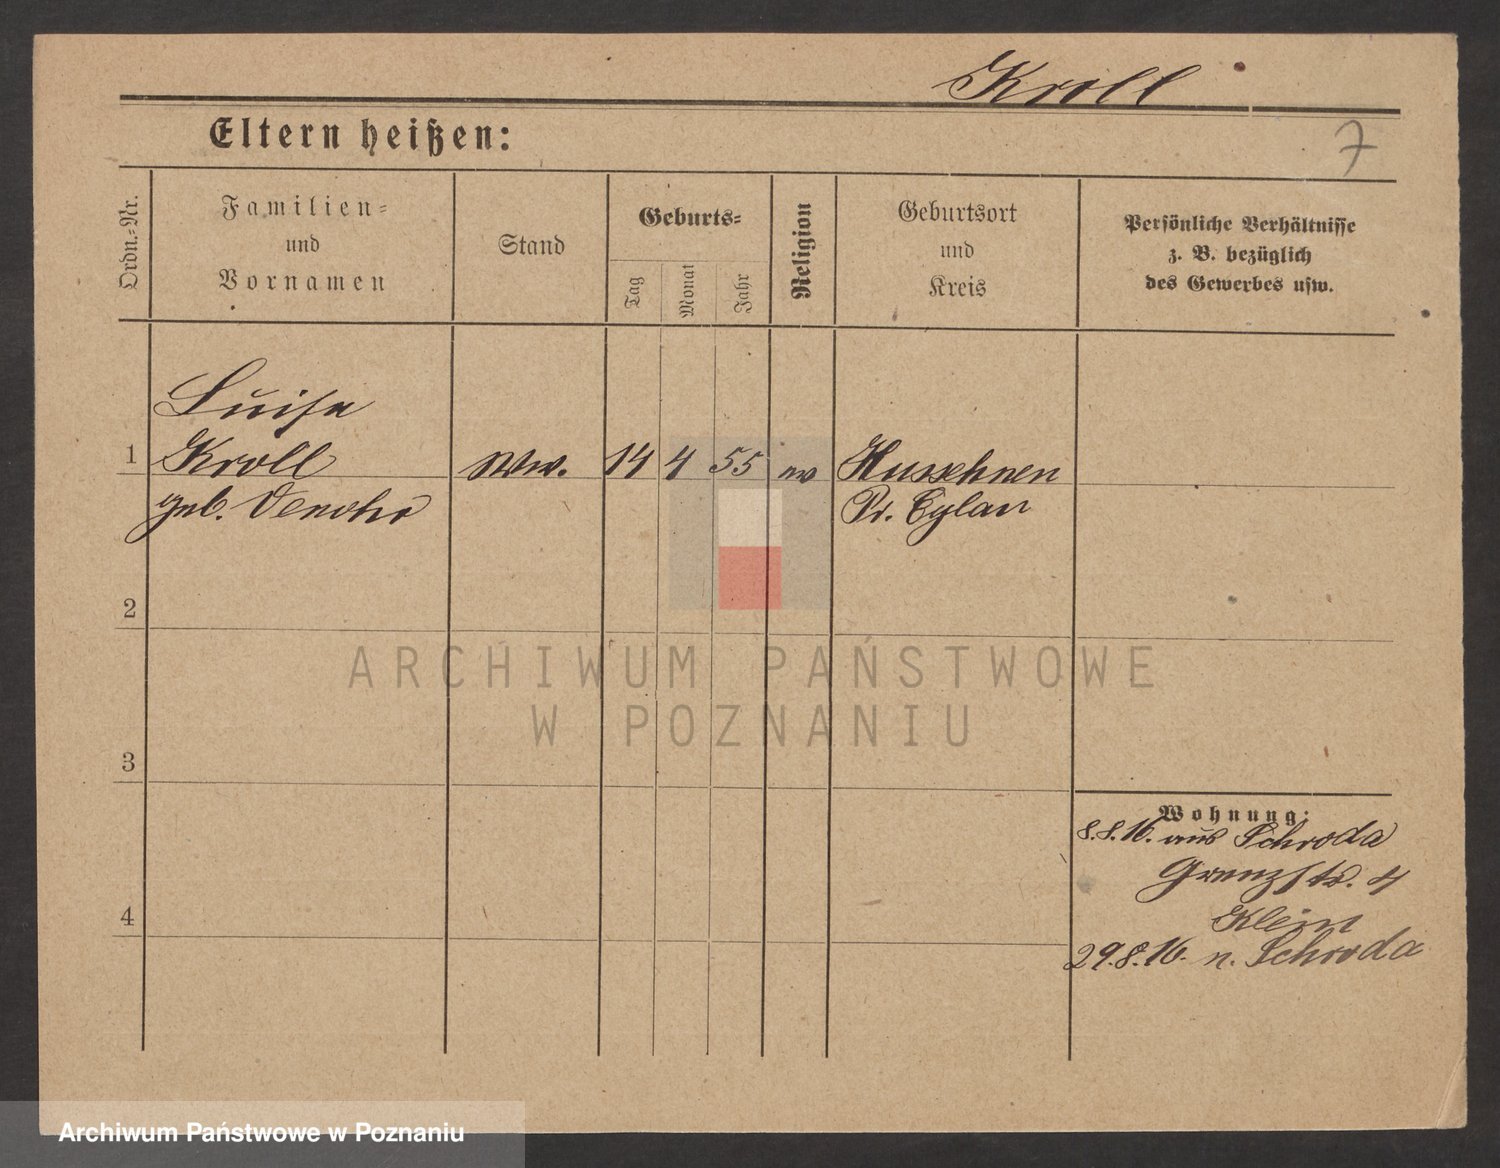 Kroll
Eltern heißen:
7
Ordn.-Nr.
Familien-
und
Vornamen
Stand
Geburts-
Tag
Monat
Jahr
Religion
Geburtsort
und
Kreis
Persönliche Verhältnisse
z. B. bezüglich
des Gewerbes usw.
Luise
1 Kroll Ww. 14 4 55 Huschnen
geb. Pr. Eylau
2
3
4
Wohnung:
8.8.16. aus Schroda
Grenzstr. 4
Klein
29.8.16. n. Schroda
ARCHIWUM PAŃSTWOWE
W POZNANIU
Archiwum Państwowe w Poznaniu